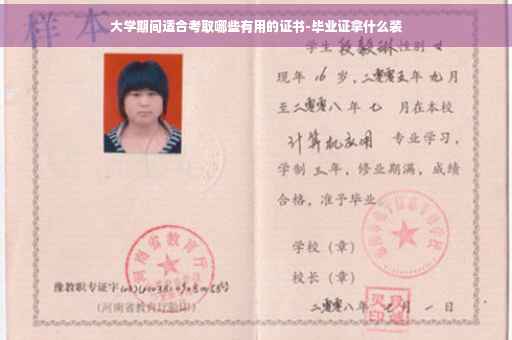 大学期间适合考取哪些有用的证书-毕业证拿什么装
样本
学生 段毅琳 性别 女
现年 16 岁，二零零五年 九月
至二零零八年 七 月在本校
计算机应用 专业学习，
学制 三 年，修业期满，成绩
合格，准予毕业。
学校（章）
校长（章）
二零零八年 月 一 日
河南省教育厅
豫教职专证字
（河南省教育厅验印）